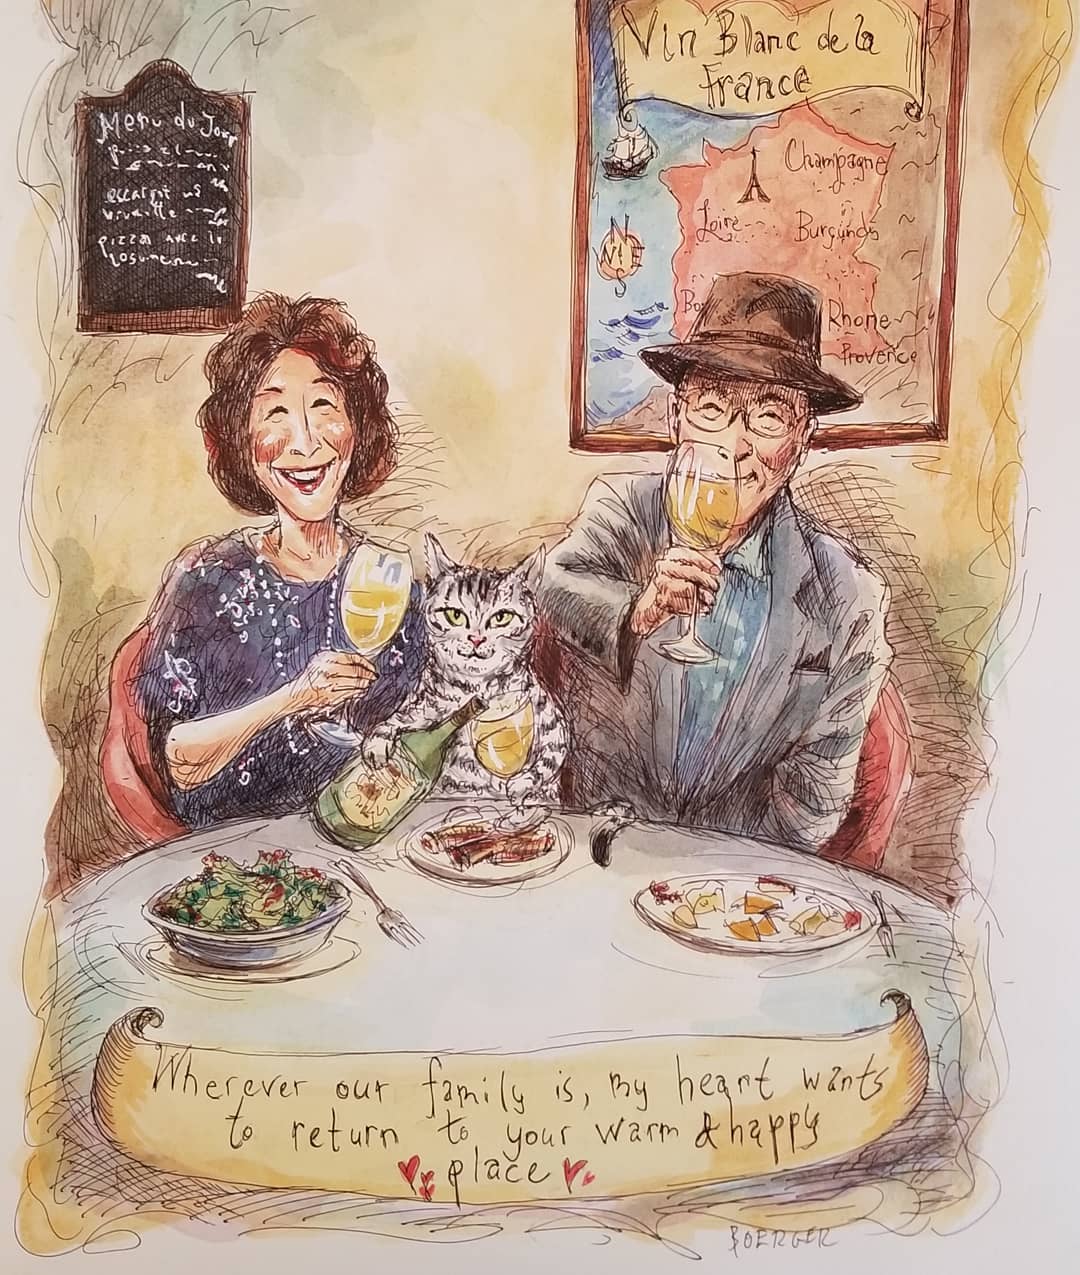 Menu du Jour
escargot
pizza avec le
Vin Blanc de la
France
Champagne
Loire
Burgundy
N
E
S
Bo
Rhone
Provence
Wherever our family is, my heart wants
to return to your warm & happy
place
BOERGER